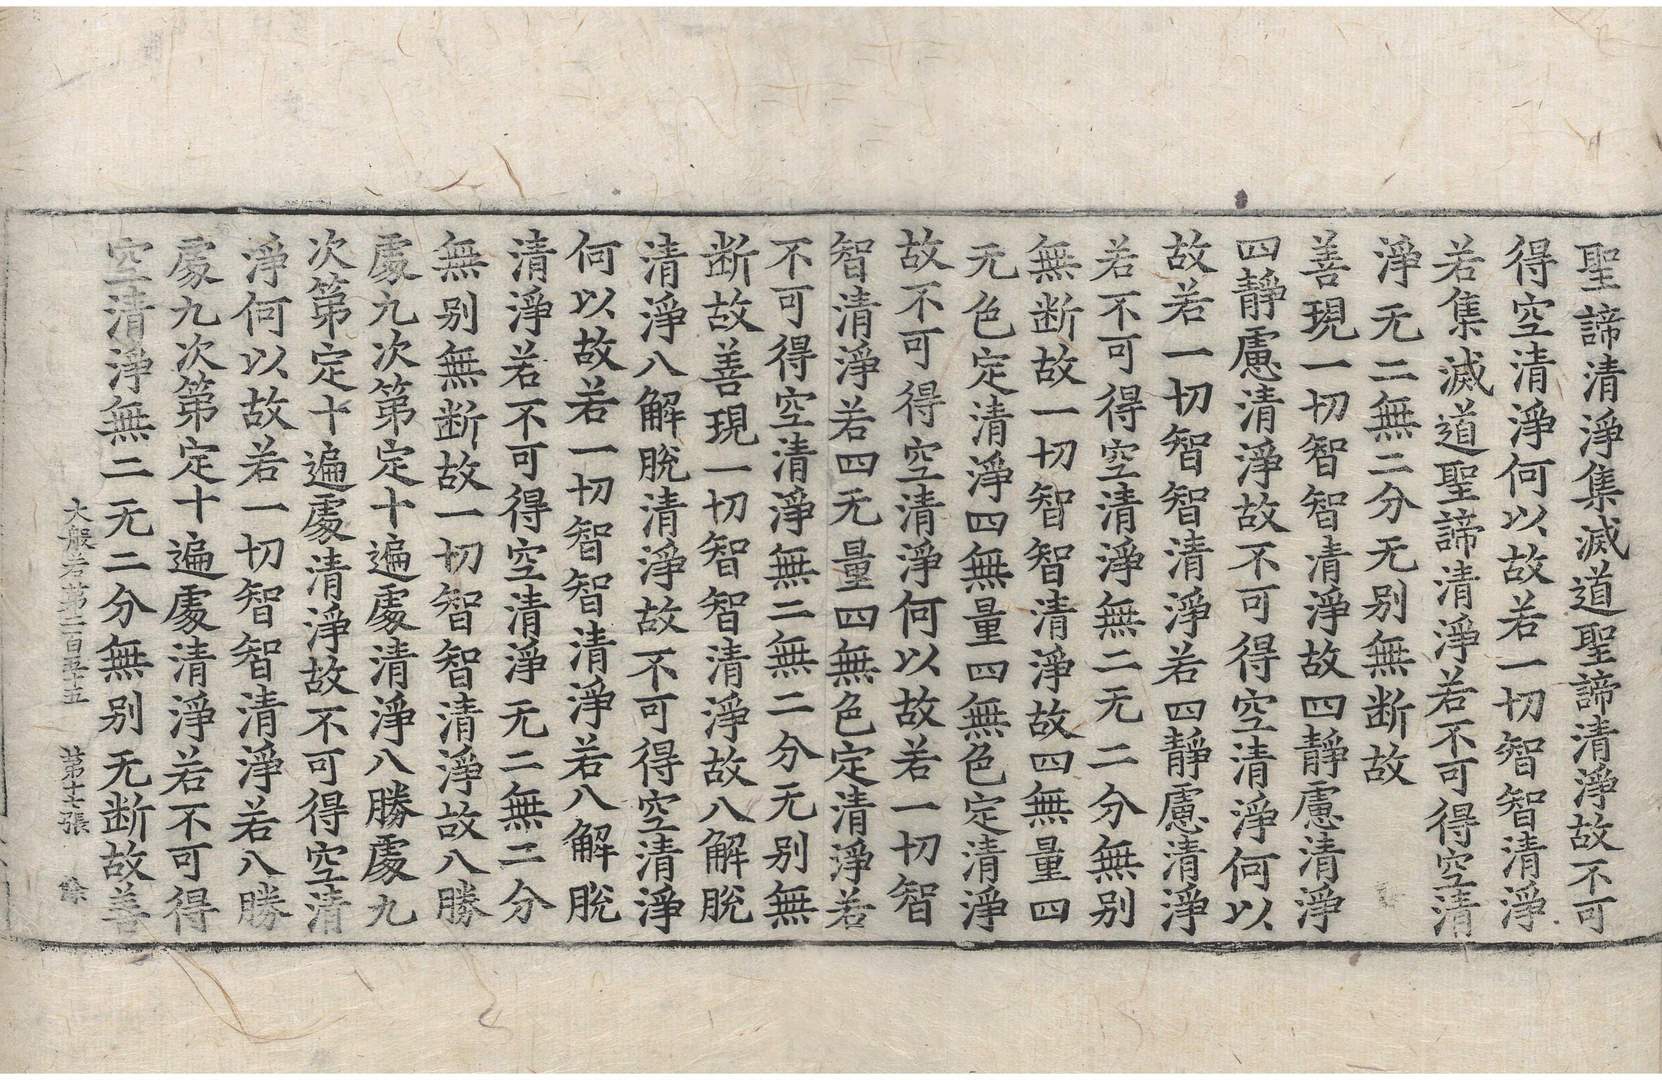 聖諦清淨集滅道聖諦清淨故不可
得空清淨何以故若一切智智清淨
若集滅道聖諦清淨若不可得空清
淨无二無二分无别無断故
善現一切智智清淨故四靜慮清淨
四靜慮清淨故不可得空清淨何以
故若一切智智清淨若四靜慮清淨
若不可得空清淨無二无二分無别
無断故一切智智清淨故四無量四
无色定清淨四無量四無色定清淨
故不可得空清淨何以故若一切智
智清淨若四无量四無色定清淨若
不可得空清淨無二無二分无别無
断故善現一切智智清淨故八解脫
清淨八解脫清淨故不可得空清淨
何以故若一切智智清淨若八解脫
清淨若不可得空清淨无二無二分
無别無断故一切智智清淨故八勝
處九次第定十遍處清淨八勝處九
次第定十遍處清淨故不可得空清
淨何以故若一切智智清淨若八勝
處九次第定十遍處清淨若不可得
空清淨無二无二分無别无断故善
大般若第二百五十五 第十七張